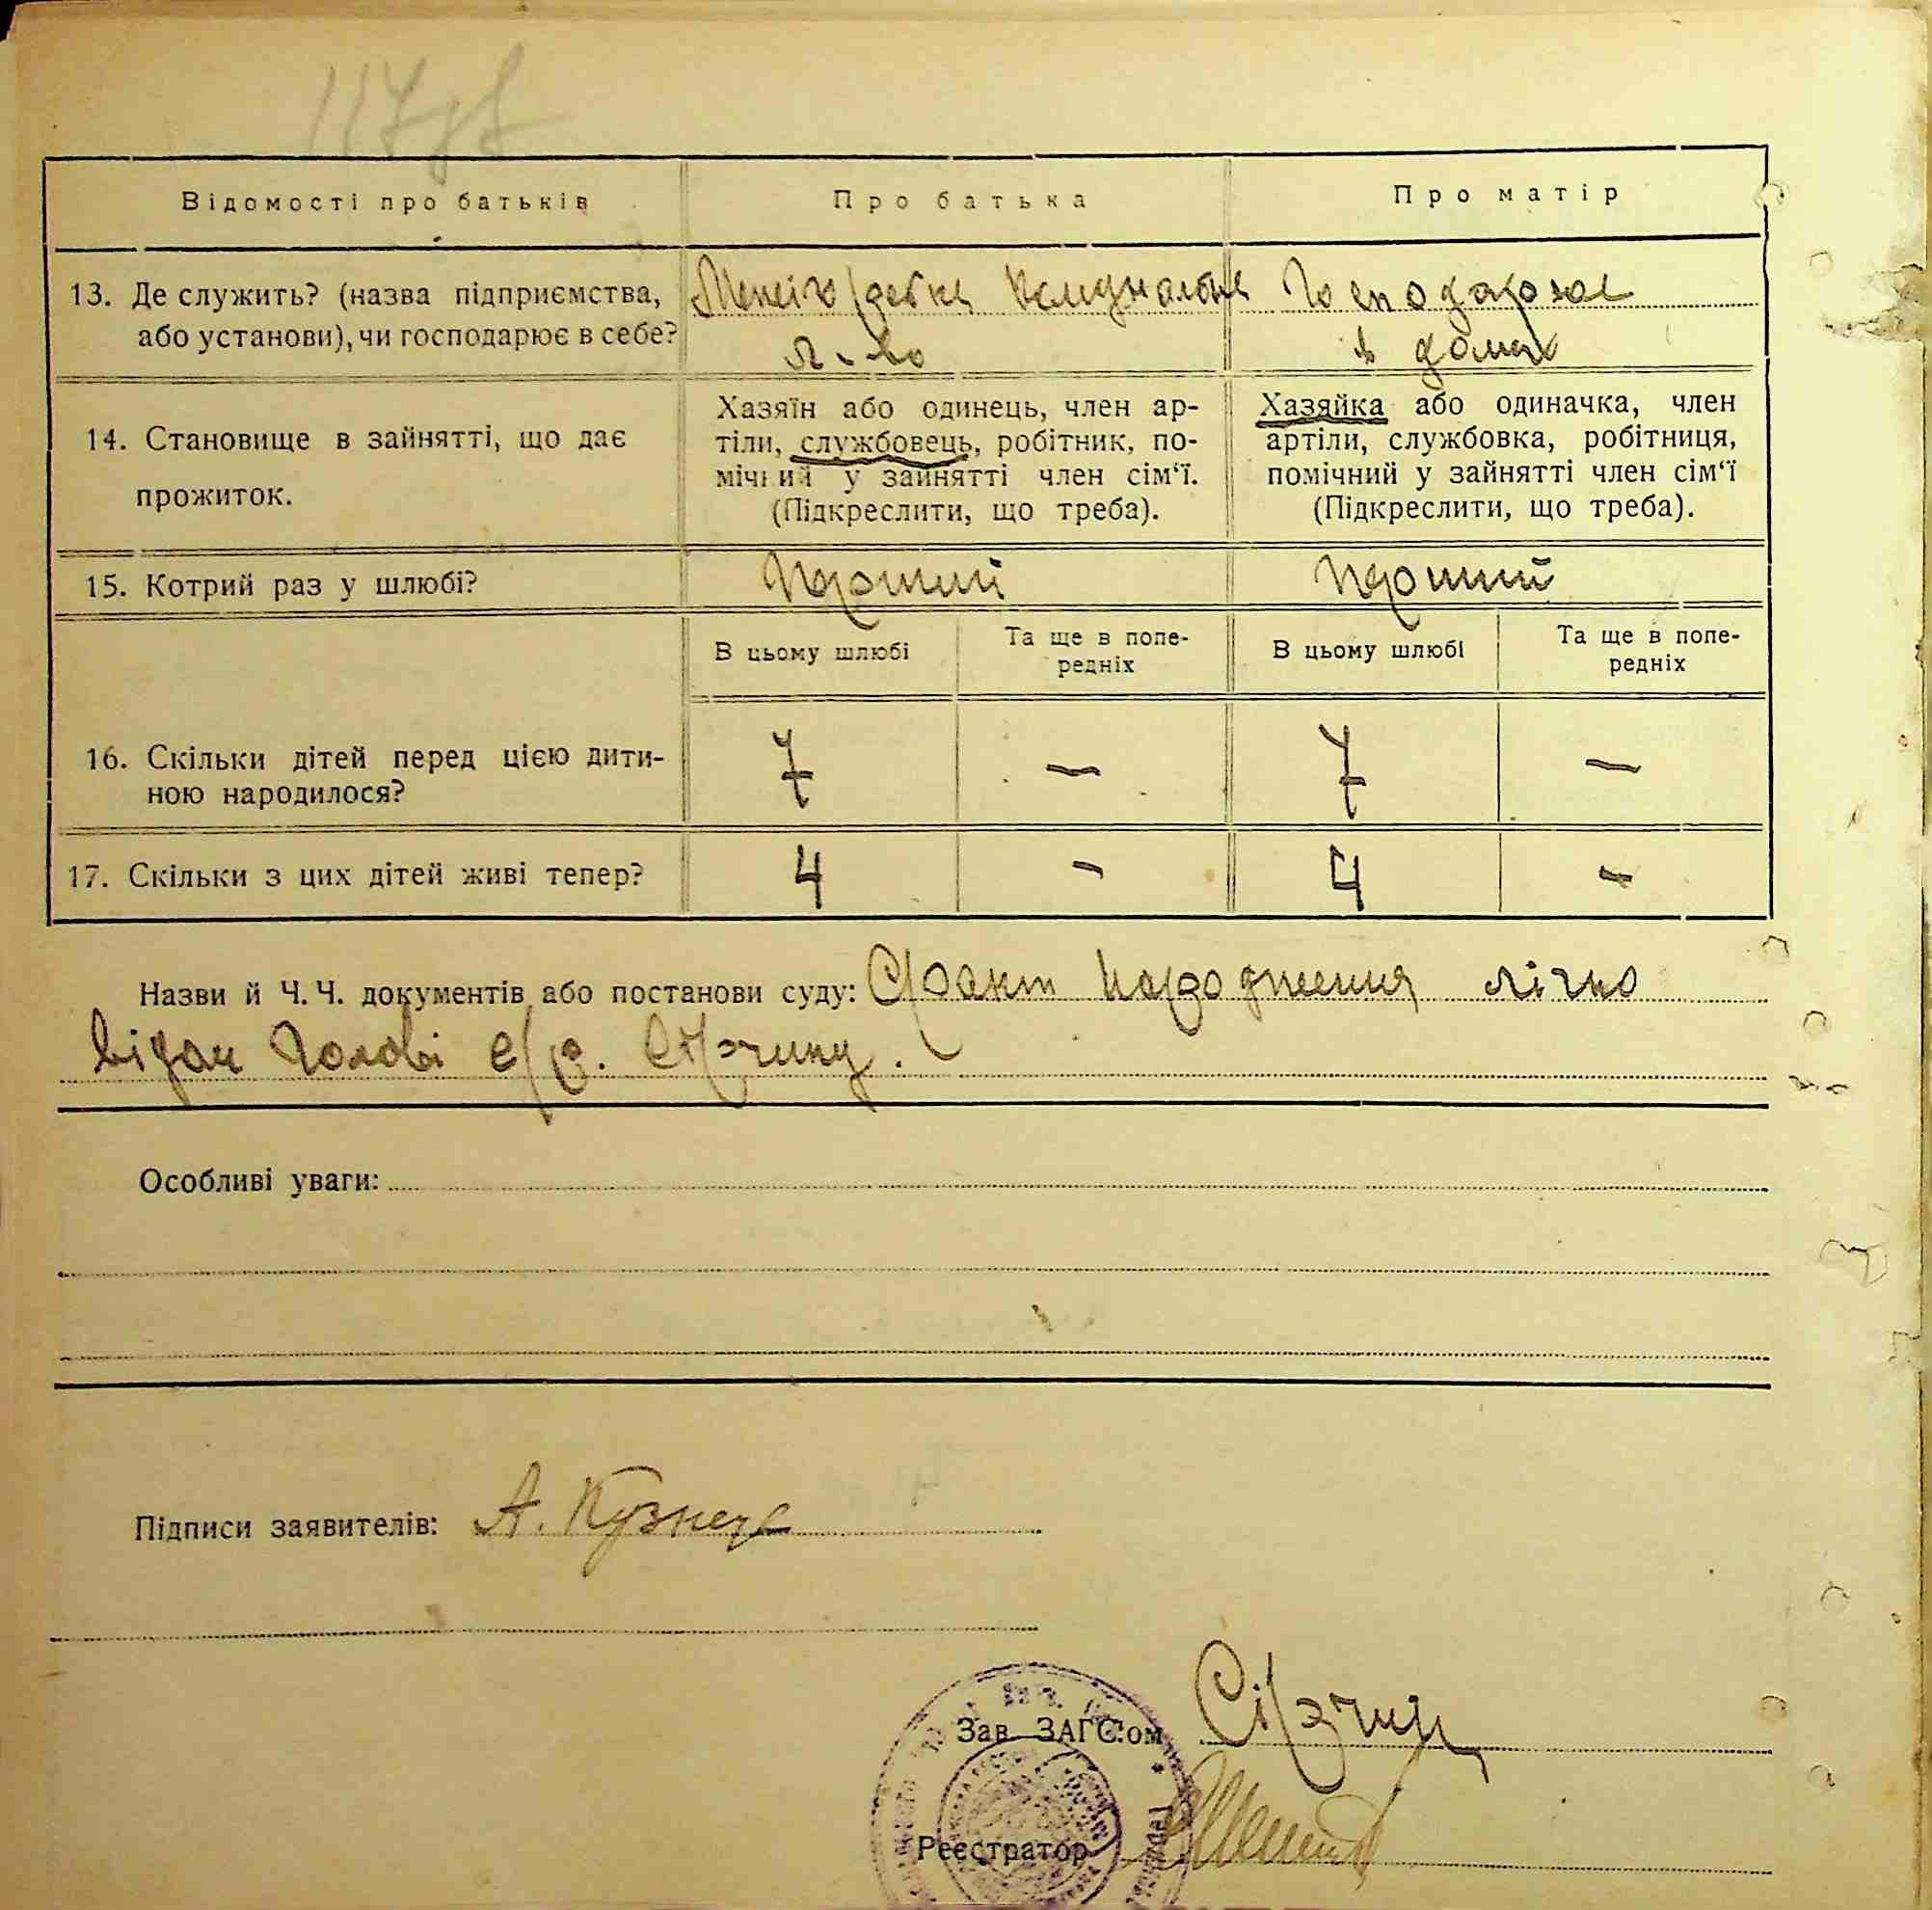 Відомості про батьків
Про батька
Про матір
13. Де служить? (назва підприємства,
або установи), чи господарює в себе?
Господарює
в дома
14. Становище в зайнятті, що дає
прожиток.
Хазяїн або одинець, член ар-
тіли, службовець, робітник, по-
мічний у зайнятті член сім‘ї.
(Підкреслити, що треба).
Хазяйка або одиначка, член
артіли, службовка, робітниця,
помічний у зайнятті член сім‘ї
(Підкреслити, що треба).
15. Котрий раз у шлюбі?
перший
перший
В цьому шлюбі
Та ще в попе-
редніх
В цьому шлюбі
Та ще в попе-
редніх
16. Скільки дітей перед цією дити-
ною народилося?
7 — 7 —
17. Скільки з цих дітей живі тепер?
4 - 4 -
Назви й Ч. Ч. документів або постанови суду: факт народження лічно
відан Голові с/р.
Особливі уваги:
Підписи заявителів: А. Кузнец
Зав. ЗАГС‘ом
Реєстратор